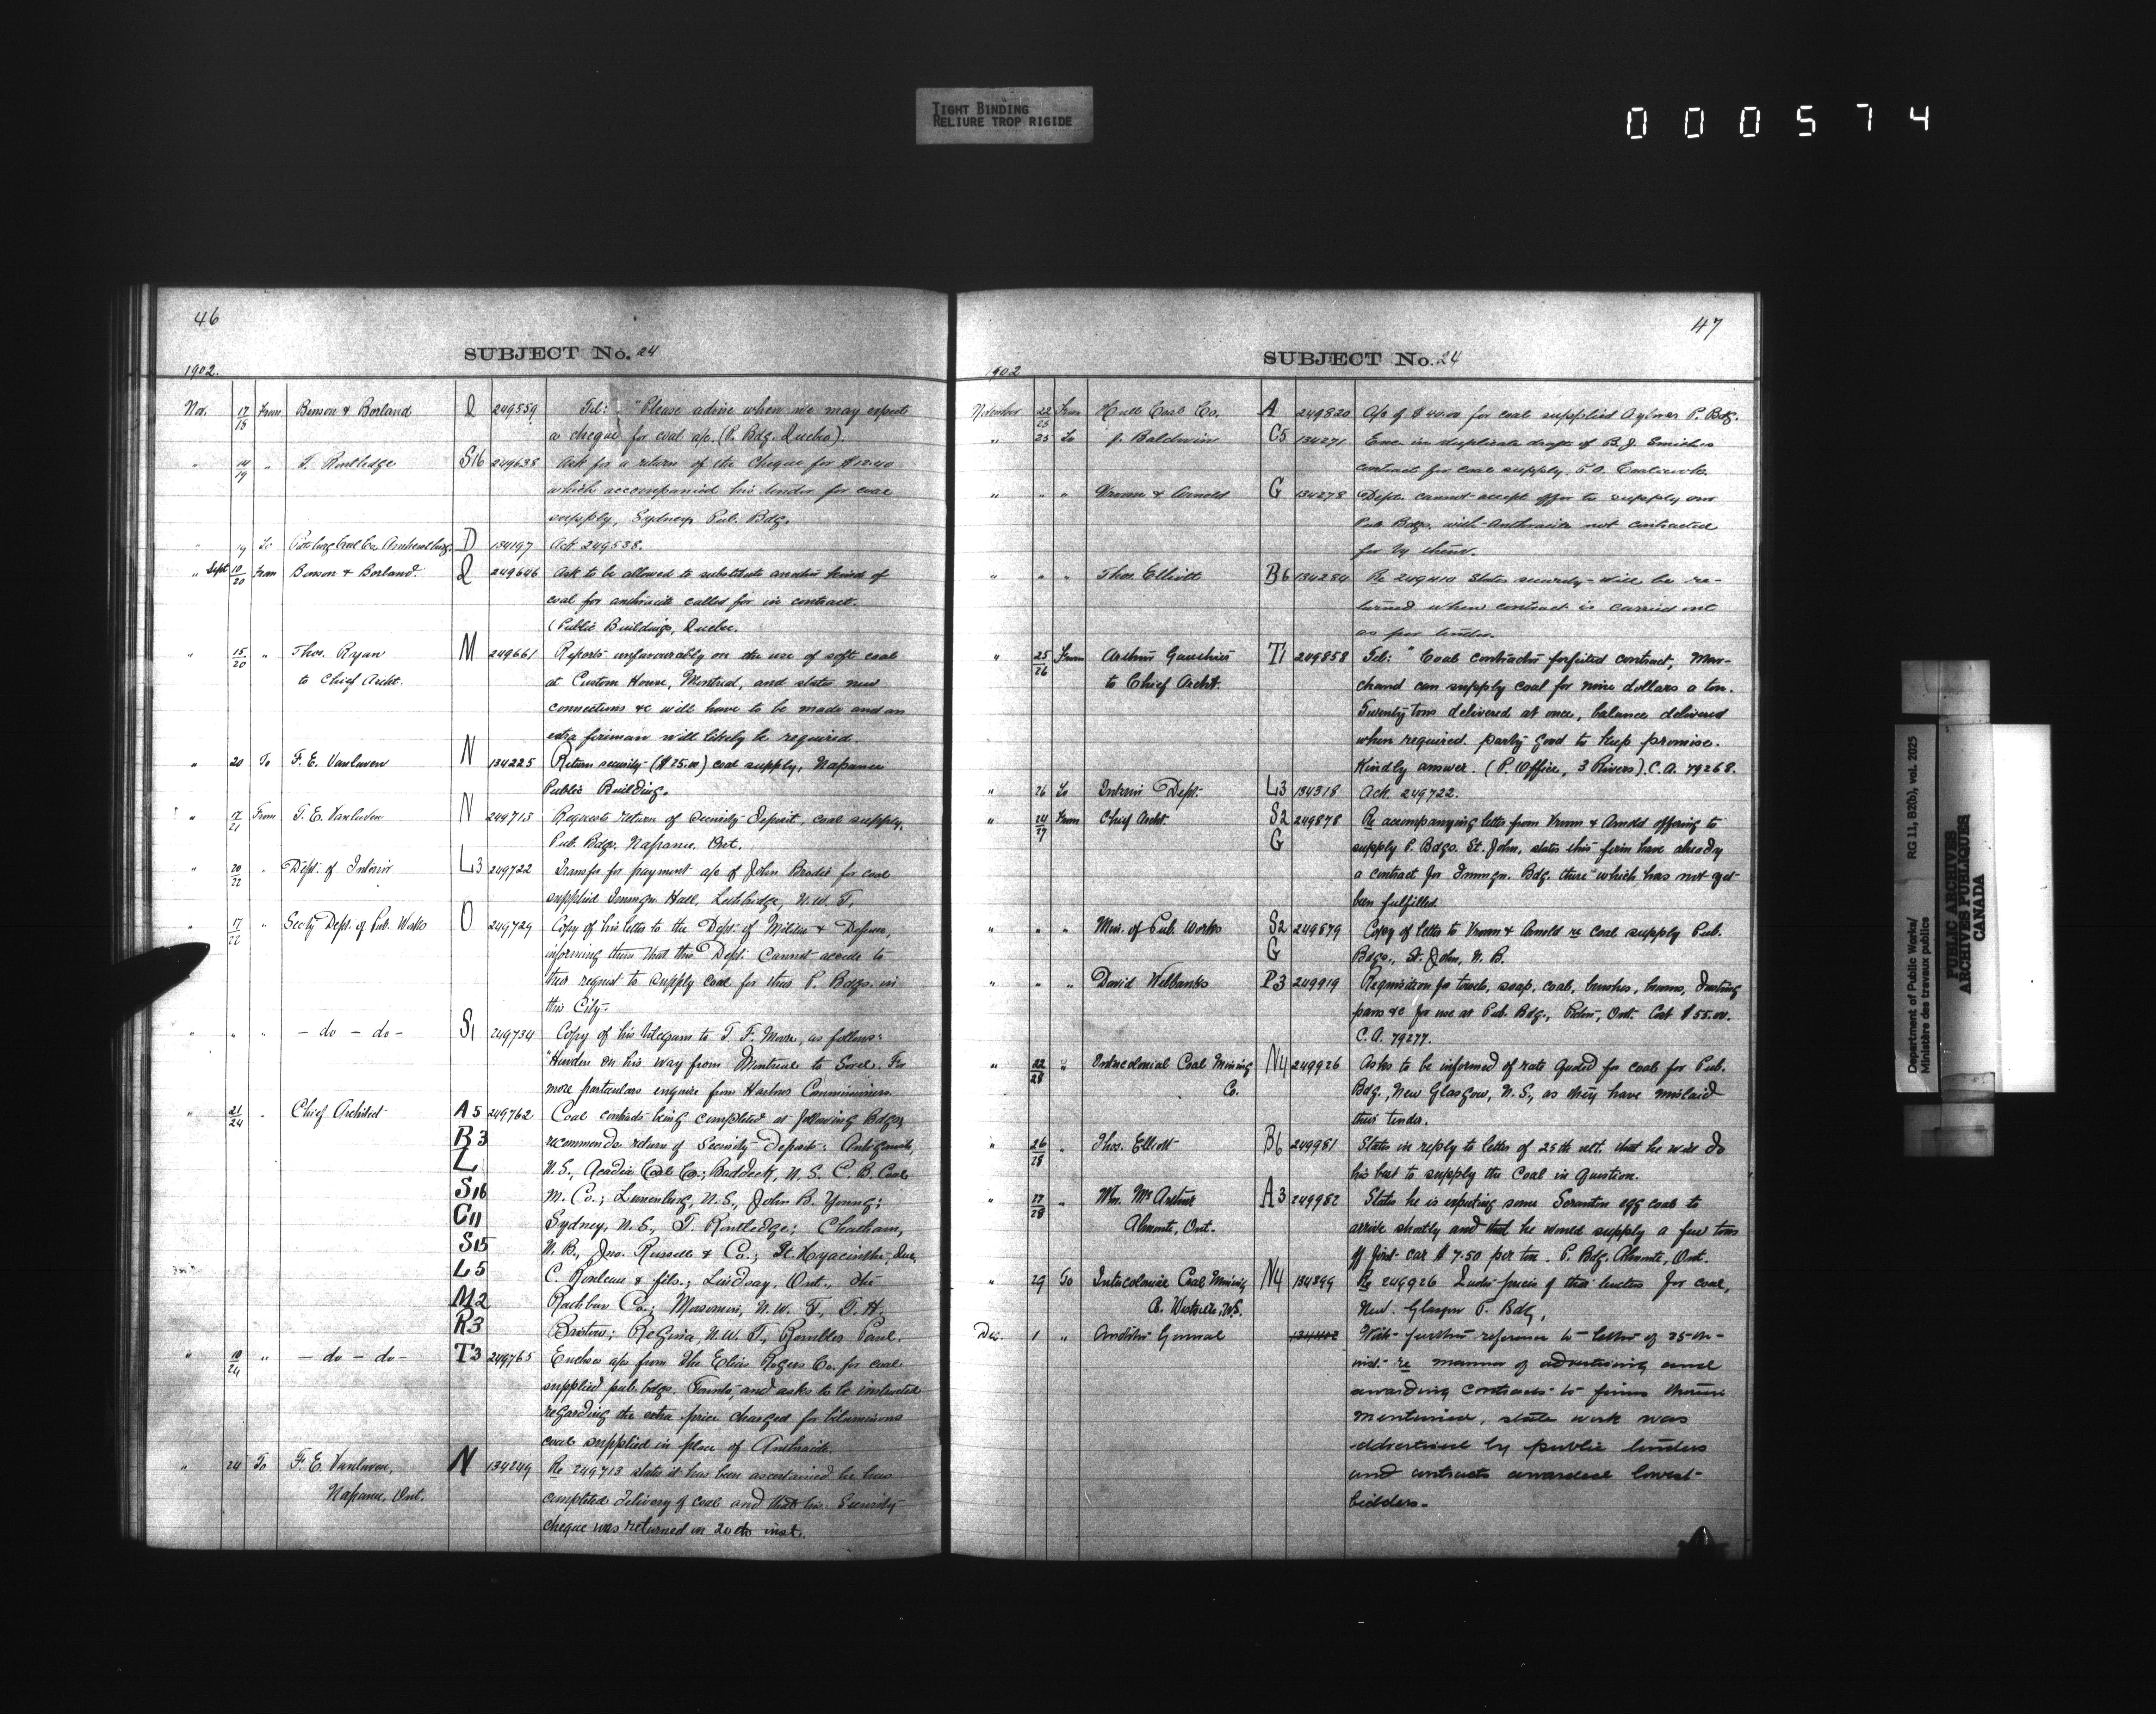 TIGHT BINDING
RELIURE TROP RIGIDE
000574
46
SUBJECT No. 24
1902.
Nov. 17/18 From Benson & Borland Q 249559 Tel: "Please advise when we may expect
a cheque for coal a/c. (P. Bdg. Quebec).
" 14/19 " T. Routledge S16 249638 Ask for a return of the Cheque for $12.40
which accompanied his tender for coal
supply, Sydney Pub. Bdg.
" 19 To Coal Co. Amherstburg D 134197 Ack 249538.
" Sept 10/20 From Benson & Borland. Q 249646 Ask to be allowed to substitute another kind of
coal for anthracite called for in contract.
(Public Buildings, Quebec.
" 15/20 " Thos. Ryan M 249661 Reports unfavourably on the use of soft coal
to Chief Archt. at Custom House, Montreal, and states new
connections &c will have to be made and an
extra fireman will likely be required.
" 20 To F. E. Vanluven N 134225 Return security ($25.00) coal supply, Napanee
Public Building.
" 17/21 From F. E. Vanluven N 249713 Requests return of Security Deposit, coal supply,
Pub. Bdg. Napanee. Ont.
" 20/22 " Dept. of Interior L3 249722 Transfer for payment a/c of John Brodie for coal
supplied Immgn. Hall, Lethbridge, N.W.T.
" 17/22 " Secty Dept. of Pub. Works O 249729 Copy of his letter to the Dept. of Militia & Defence,
informing them that this Dept. cannot accede to
their request to supply coal for their P. Bdgs. in
this City.
" " " — do — do — S1 249734 Copy of his telegram to T. F. Moore, as follows:
on his way from Montreal to Sorel. For
more particulars enquire from Harbor Commissioners.
" 21/24 " Chief Architect A5 249762 Coal contracts being completed at following Bdgs,
B3 recommends return of Security Deposits: Antigonish,
L N.S., Acadia Coal Co.; Baddeck, N.S. C.B. Coal
S16 M. Co.; Lunenburg, N.S., John B. Young;
C11 Sydney, N.S., T. Routledge; Chatham,
S15 N.B., Jno. Russell & Co.; St. Hyacinthe, Que,
L5 C. Rouleau & fils.; Lindsay, Ont., The
M2 Rathbun Co.; Moosomin, N.W.T., T. H.
R3 Bristow; Regina, N.W.T., Rombles Paul.
" 18/24 " — do — do — T3 249765 Encloses a/cs from The Elias Rogers Co. for coal
supplied pub. bdgs. Toronto, and asks to be instructed
regarding the extra price charged for bituminous
coal supplied in place of Anthracite.
" 24 To F. E. Vanluven, N 134249 Re 249713 states it has been ascertained he has
Napanee, Ont. completed delivery of coal and that his Security
cheque was returned on 20th inst.
47
SUBJECT No. 24
1902
November 22/25 From Hull Coal Co. A 249820 A/c of $44.00 for coal supplied Aylmer P. Bdg.
" 25 To J. Baldwin C5 134271 Enc. in duplicate draft of B. J. Smith's
contract for coal supply, P.O. Coaticook.
" " " Vroom & Arnold G 134278 Dept. cannot accept offer to supply our
Pub. Bdgs. with Anthracite not contracted
for by them.
" " " Thos. Elliott B6 134284 Re 249410 States security will be re-
turned when contract is carried out
as per tender.
" 25/26 From Arthur Gauthier T1 249858 Tel: "Coal contractor forfeited contract, Mar-
to Chief Archt. chand can supply coal for nine dollars a ton.
Twenty tons delivered at once, balance delivered
when required. party good to keep promise.
Kindly answer. (P. Office, 3 Rivers). C.A. 79268.
" 26 To Interior Dept. L3 134318 Ack. 249722.
" 24/27 From Chief Archt. S2 249878 Re accompanying letter from Vroom & Arnold offering to
G supply P. Bdgs. St. John, states this firm have already
a contract for Immgn. Bdg. there which has not yet
been fulfilled.
" " " Min. of Pub. Works S2 249879 Copy of letter to Vroom & Arnold re coal supply Pub.
G Bdgs., St. John, N.B.
" " " David Welbanks P3 249919 Requisition for towels, soap, coal, brushes, brooms, dusting
pans &c for use at Pub. Bdg., Picton, Ont. Cost $55.00.
C.A. 79277.
" 22/28 " Intercolonial Coal Mining N4 249926 Asks to be informed of rate quoted for coal for Pub.
Co. Bdg., New Glasgow, N.S., as they have mislaid
their tender.
" 26/28 " Thos. Elliott B6 249981 States in reply to letter of 25th ult. that he will do
his best to supply the Coal in question.
" 27/28 " Wm. McArthur A3 249982 States he is expecting some Scranton egg coal to
Almonte, Ont. arrive shortly and that he would supply a few tons
of first car $7.50 per ton. P. Bdg. Almonte, Ont.
" 29 To Intercolonial Coal Mining N4 134399 Re 249926 prices of their tenders for coal,
Co. Westville, N.S. New Glasgow P. Bdg.
Dec. 1 " Auditor General 134402 With further reference to letter of 25th
inst. re manner of advertising and
awarding contracts to firms therein
mentioned, state work was
advertised by public tenders
and contracts awarded lowest
bidders.
Department of Public Works/
Ministère des travaux publics
RG 11, B2(b), vol. 2025
PUBLIC ARCHIVES
ARCHIVES PUBLIQUES
CANADA